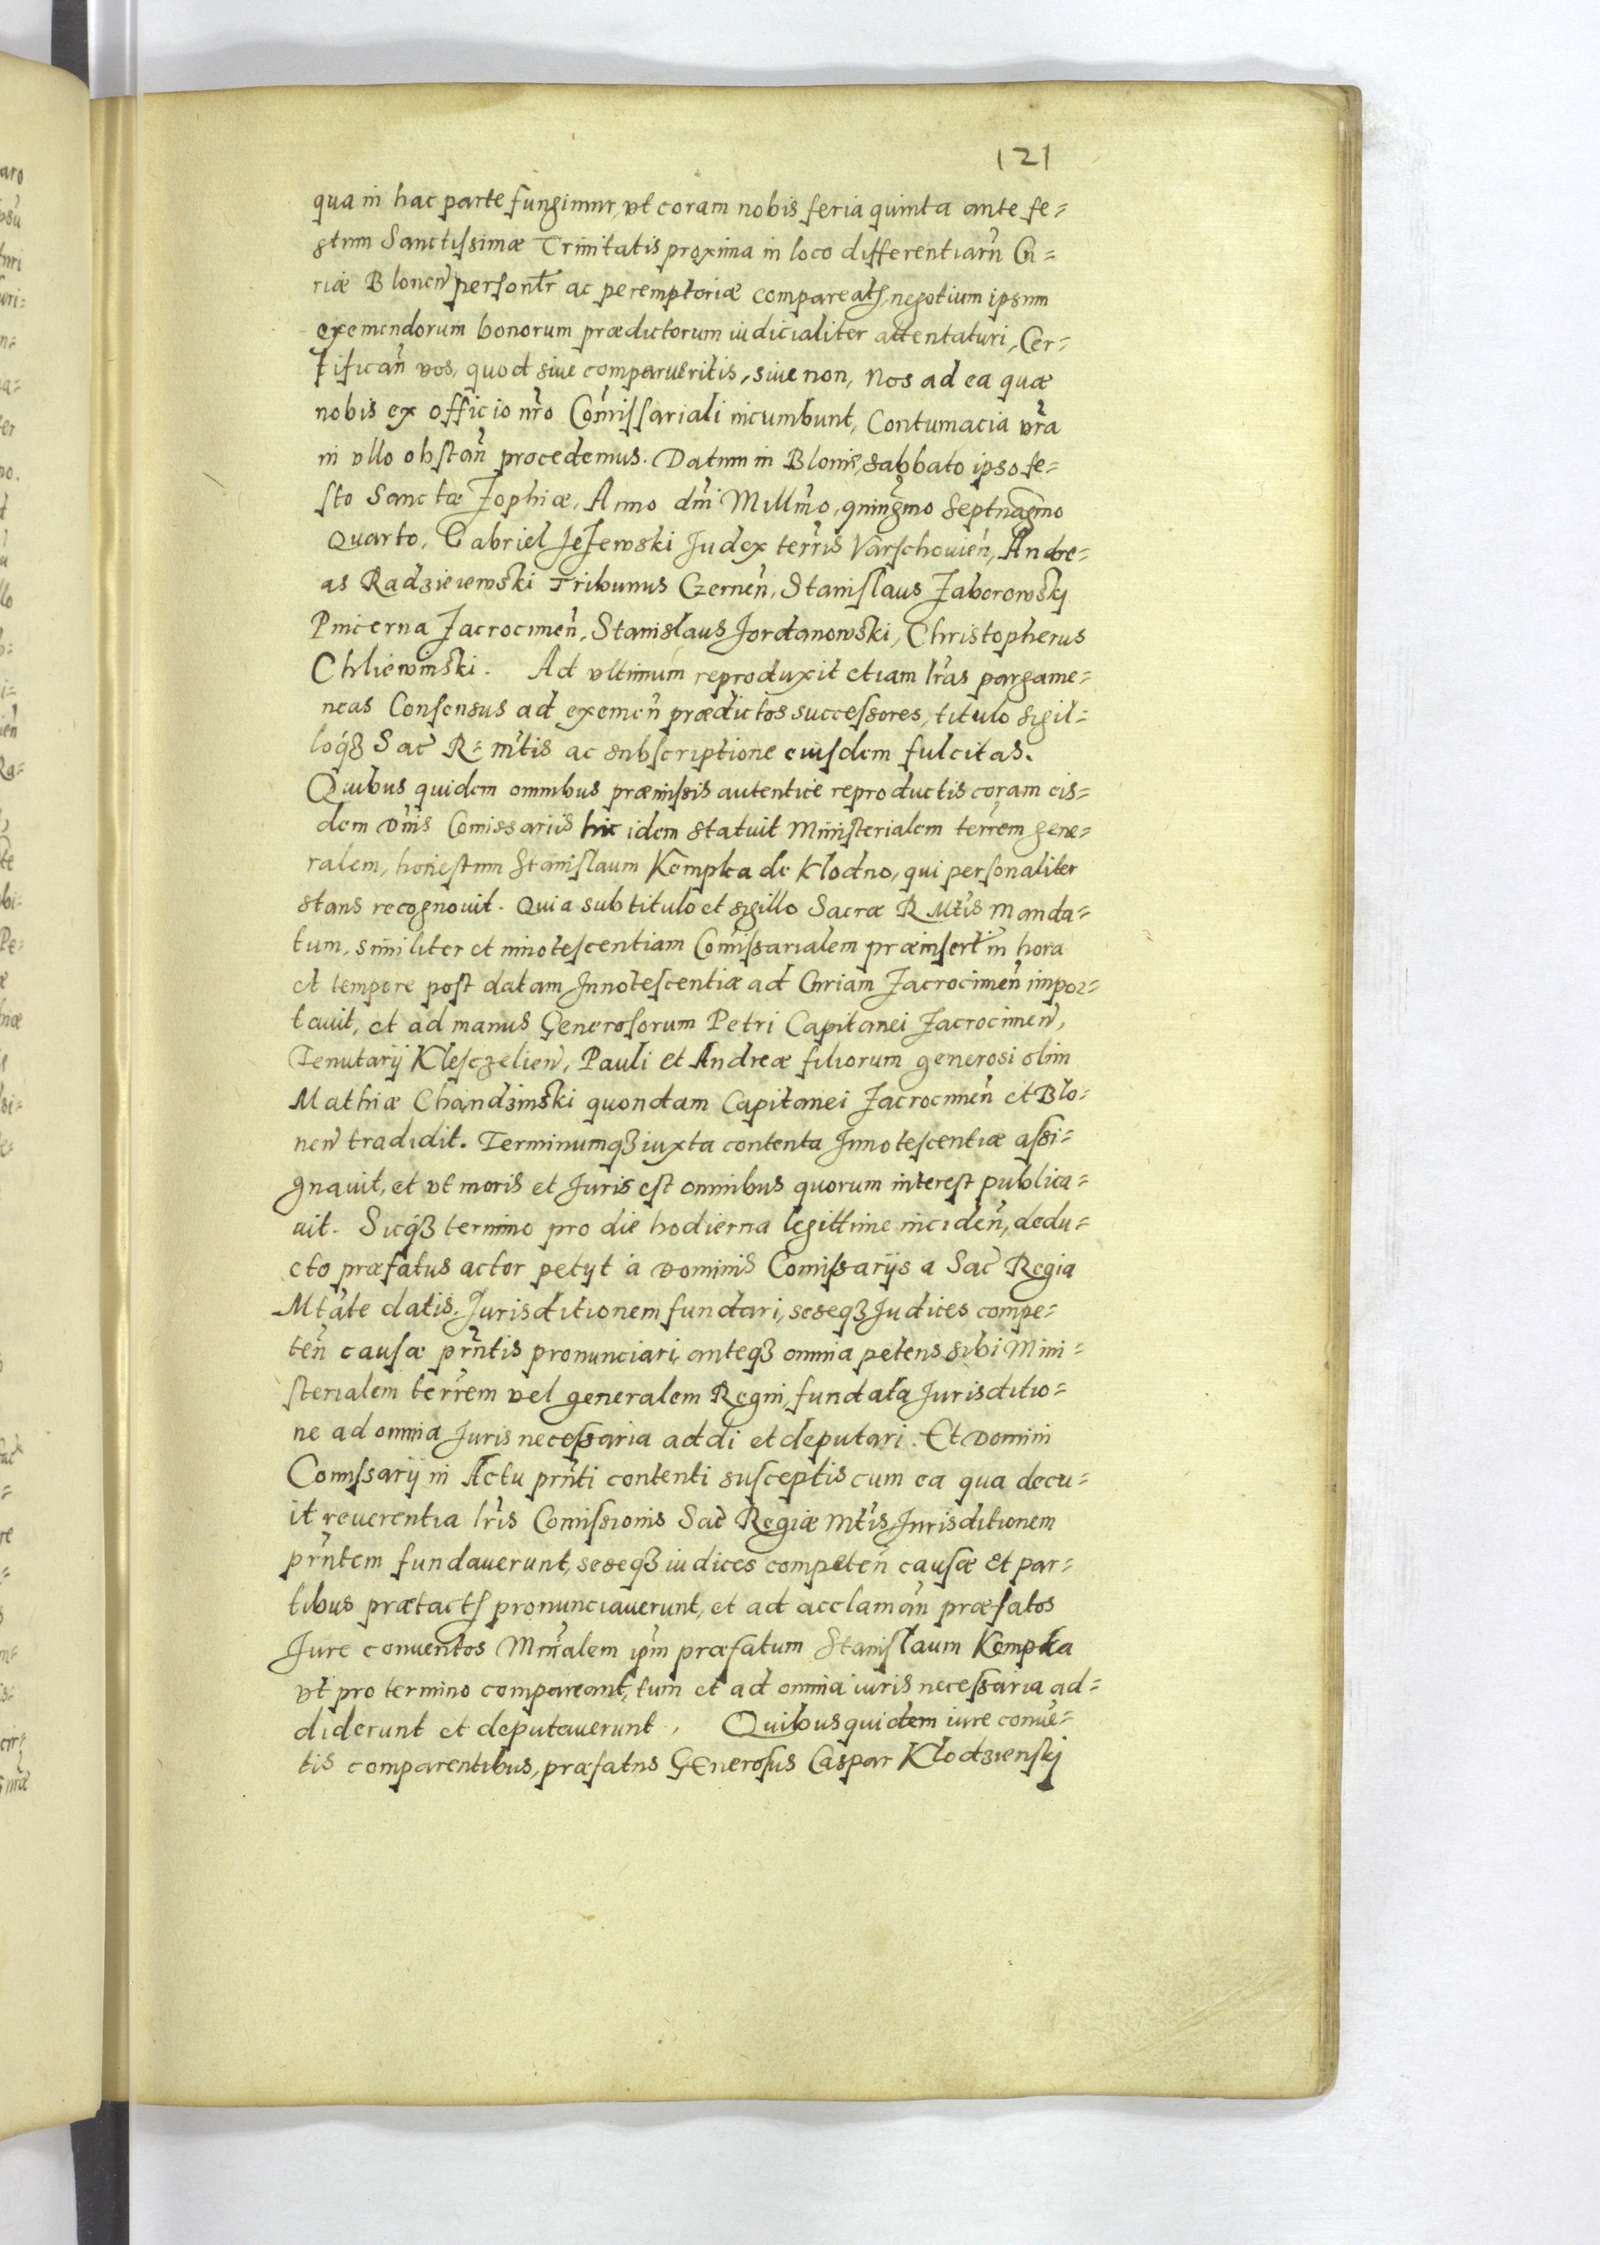 121
qua in hac parte fungimur, vt coram nobis feria quinta ante fe=
stum Sanctissimæ Trinitatis proxima in loco differentiarũ Cu=
riæ Blonen̄ personłr ac peremptoriæ compareatꝭ, negotium ipsum
exemendorum bonorum prædictorum iudicialiter attentaturi, Cer=
tifican̄ vos, quod siue comparueritis, siue non, Nos ad ea quæ
nobis ex officio nr̃o Com̃issariali incumbunt, Contumacia vr̃a
in vllo obstan̄ procedemus. Datum in Blonie, sabbato ipso fe=
sto Sanctæ Zophiæ, Anno dn̄i Millm̃o, quingm̃o Septuagm̃o
Quarto, Gabriel Jezewski Judex terr̃is Varschouien̄, Andre=
as Radzieiewski Tribunus Czernen̄, Stanislaus Zaborowskj
Pincerna Zacrocimen̄, Stanislaus Jordanowski, Christopherus
Chliewinski. Ad vltimum reproduxit etiam lr̃as pargame=
neas Consensus ad exemen̄ prædictos successores, titulo sigil=
loqꝫ Sac̃ R= mtis ac subscriptione eiusdem fulcitas.
Quibus quidem omnibus præmissis autentice reproductis coram eis=
dem Dn̄is Comissariis hic idem statuit Ministerialem terr̃em gene=
ralem, honestum Stanislaum Kempka de Klodno, qui personaliter
stans recognouit. Quia sub titulo et sigillo Sacræ R Mtis manda=
tum, similiter et innotescentiam Com̃issarialem præinsert̃ in hora
et tempore post datam Innotescentiæ ad Curiam Zacrocimen̄ impor=
tauit, et ad manus Generosorum Petri Capitanei Zacrocimen̄,
Tenutarij Klesczelien̄, Pauli et Andreæ filiorum generosi olim
Mathiæ Chandzinski quondam Capitanei Zacrocimen̄ et Blo=
nen̄ tradidit. Terminumqꝫ iuxta contenta Innotescentiæ assi=
gnauit, et vt moris et Juris est omnibus quorum interest publica=
uit. Sicqꝫ termino pro die hodierna legittime inciden̄, dedu=
cto præfatus actor petyt à Dominis Comissarijs a Sac̃ Regia
Mtate datis, Jurisditionem fundari, seseqꝫ Judices compe=
ten̄ causæ prn̄tis pronunciari, anteqꝫ omnia petens sibi Mini=
sterialem terr̃em vel generalem Regni, fundata Jurisditio=
ne ad omnia Juris necessaria addi et deputari. Et Domini
Comissarij in Actu prn̄ti contenti susceptis cum ea qua decu=
it reuerentia lr̃is Comissionis Sac̃ Regiæ Mtis Jurisditionem
prn̄tem fundauerunt, seseqꝫ iudices competen̄ causæ et par=
tibus prætactꝭ pronunciauerunt, et ad acclaman̄ præfatos
Jure conuentos Mn̄ralem ipm̃ præfatum Stanislaum Kempka
vt pro termino compareant, tum et ad omnia iuris necessaria ad=
diderunt et deputauerunt. Quibus quidem iure conuẽ=
tis comparentibus, præfatus Generosus Caspar Klodzienskj